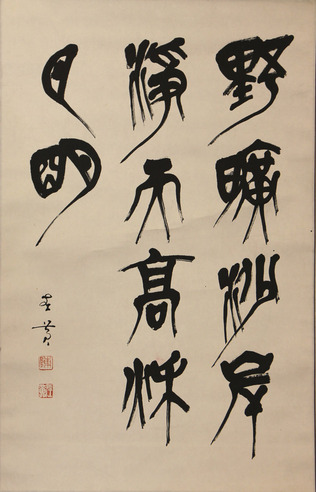 野曠沙岸
淨天高秋
月明